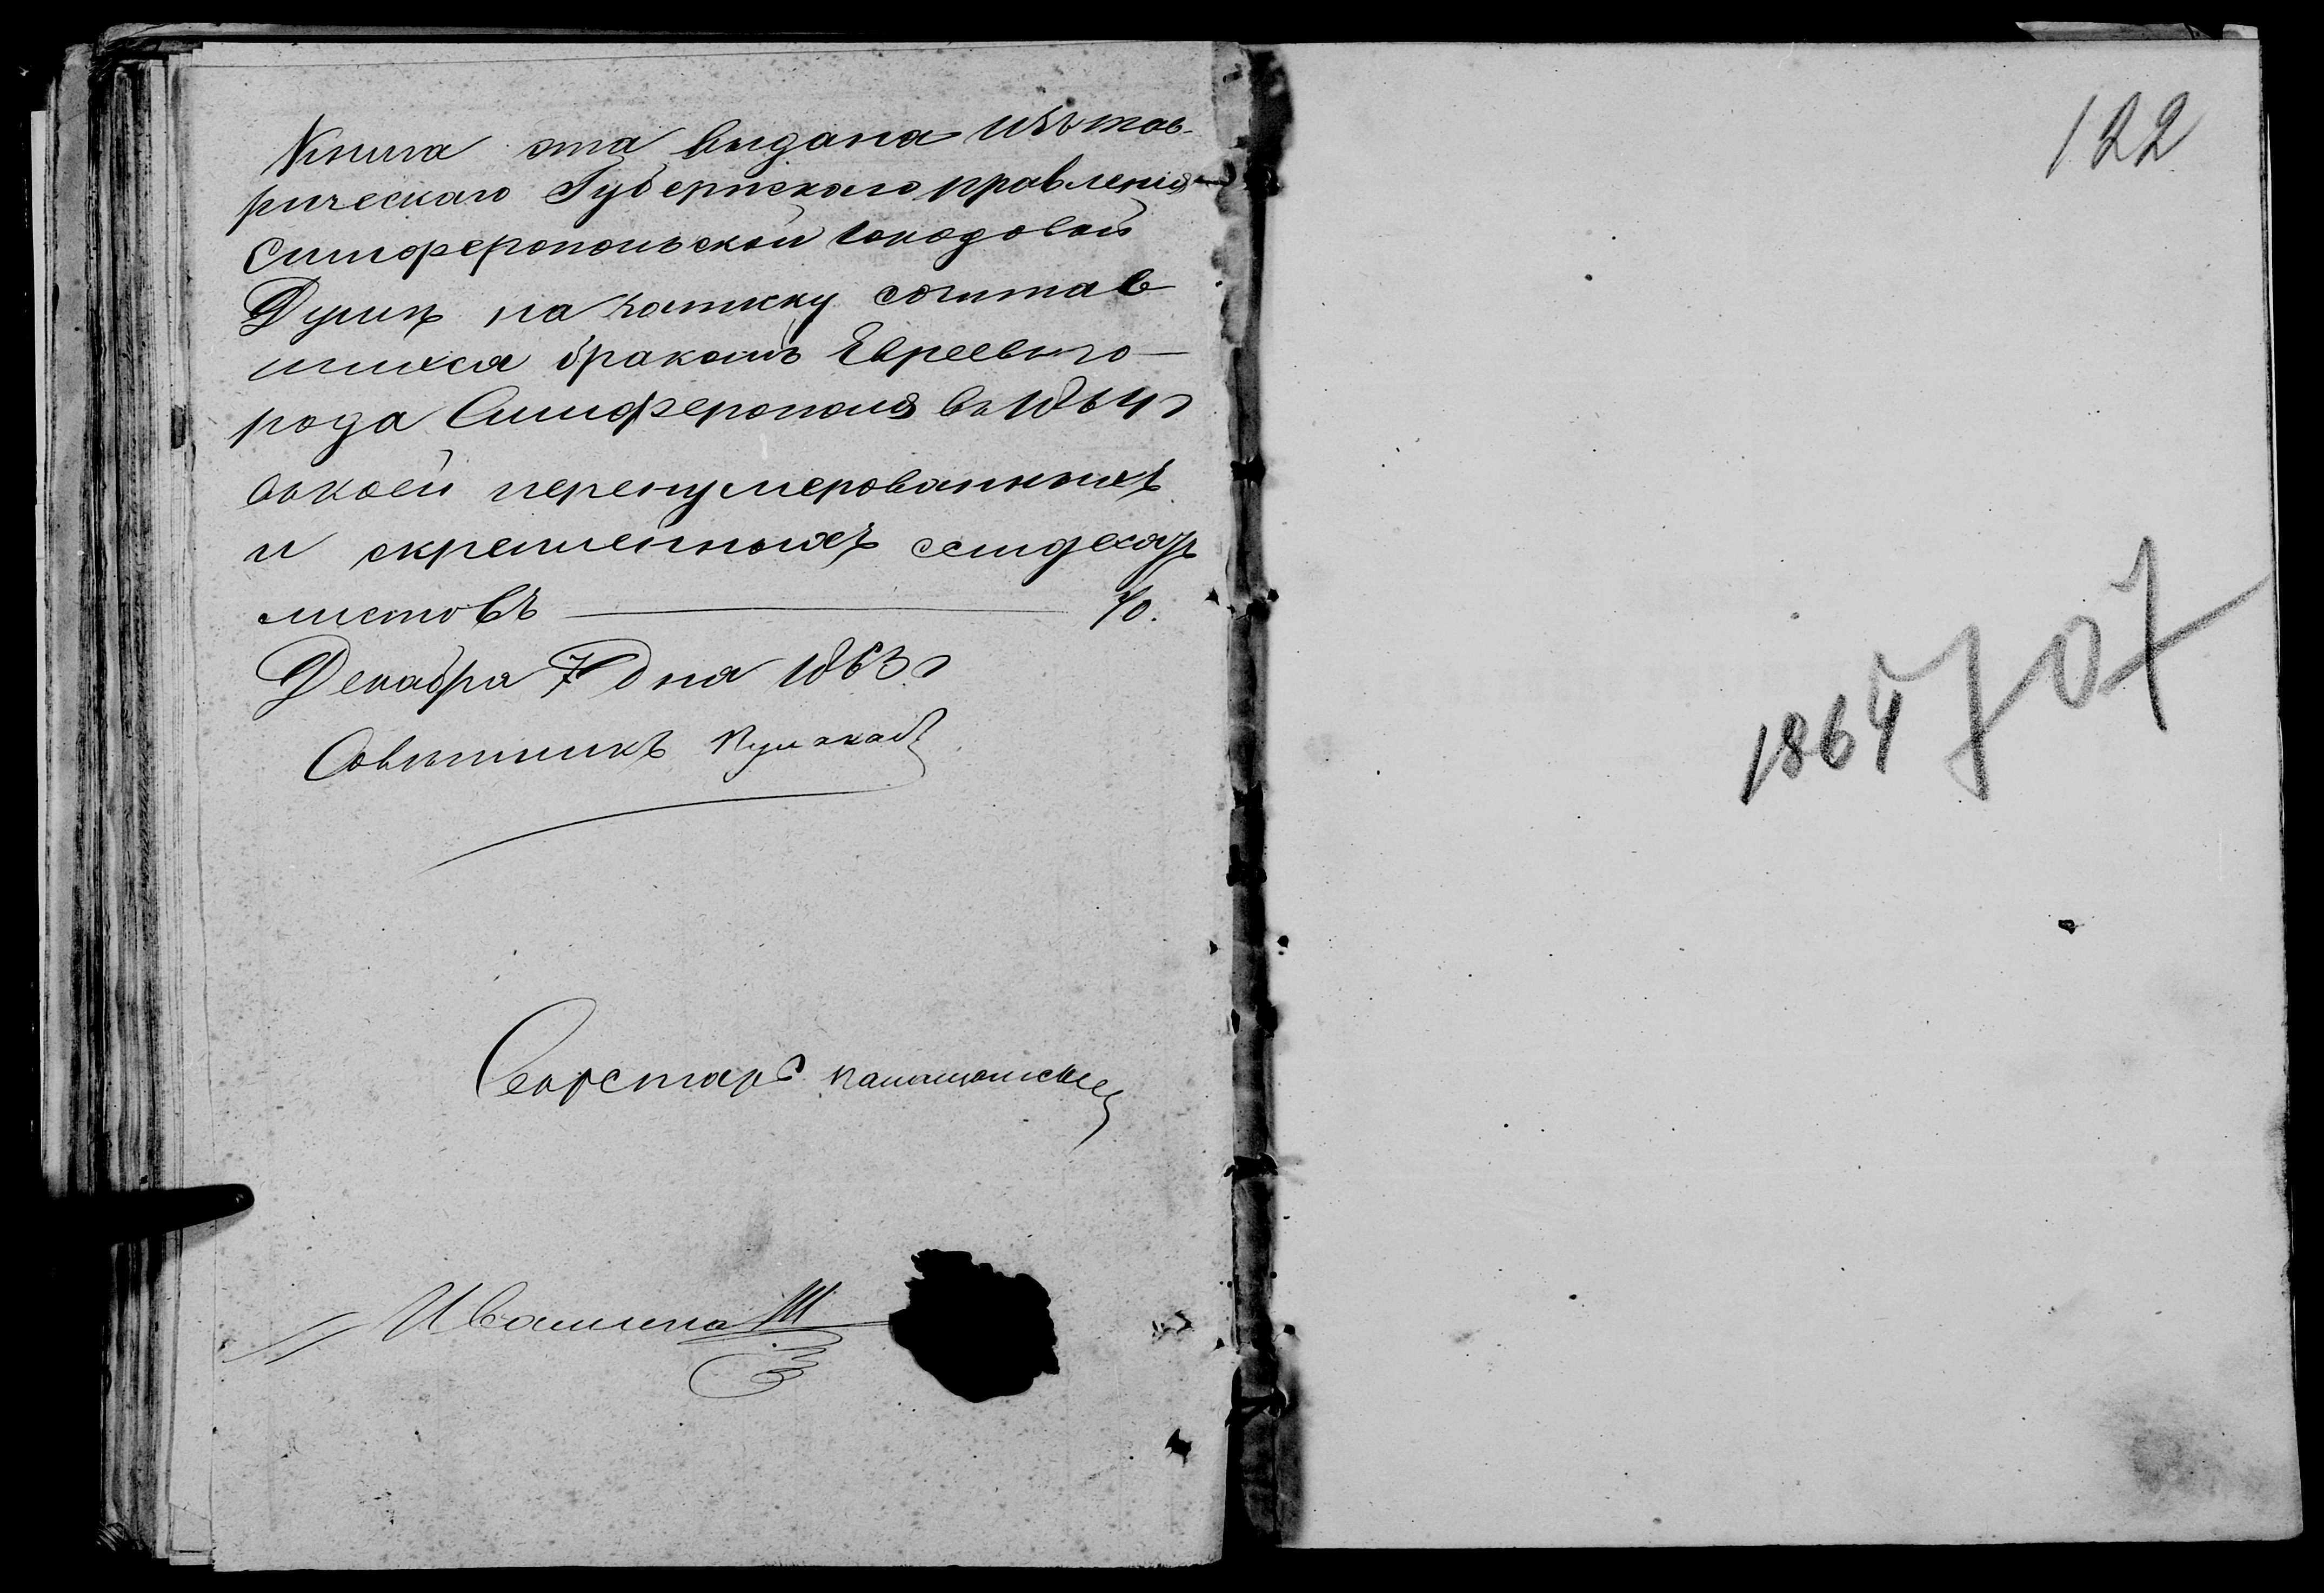 Книга эта выдана изъ Тав-
рическаго Губернскаго правленія
Симферопольской Городовой
Думѣ на записку сочетав
шихся бракомъ Евреевъ го-
рода Симферополя въ 1864 г
въ коей перенумерованныхъ
и скрепленныхъ семдесять
листовъ — 70.
Декабря 7 дня 1863 г
Совѣтникъ
Секретарь
122
1864 707